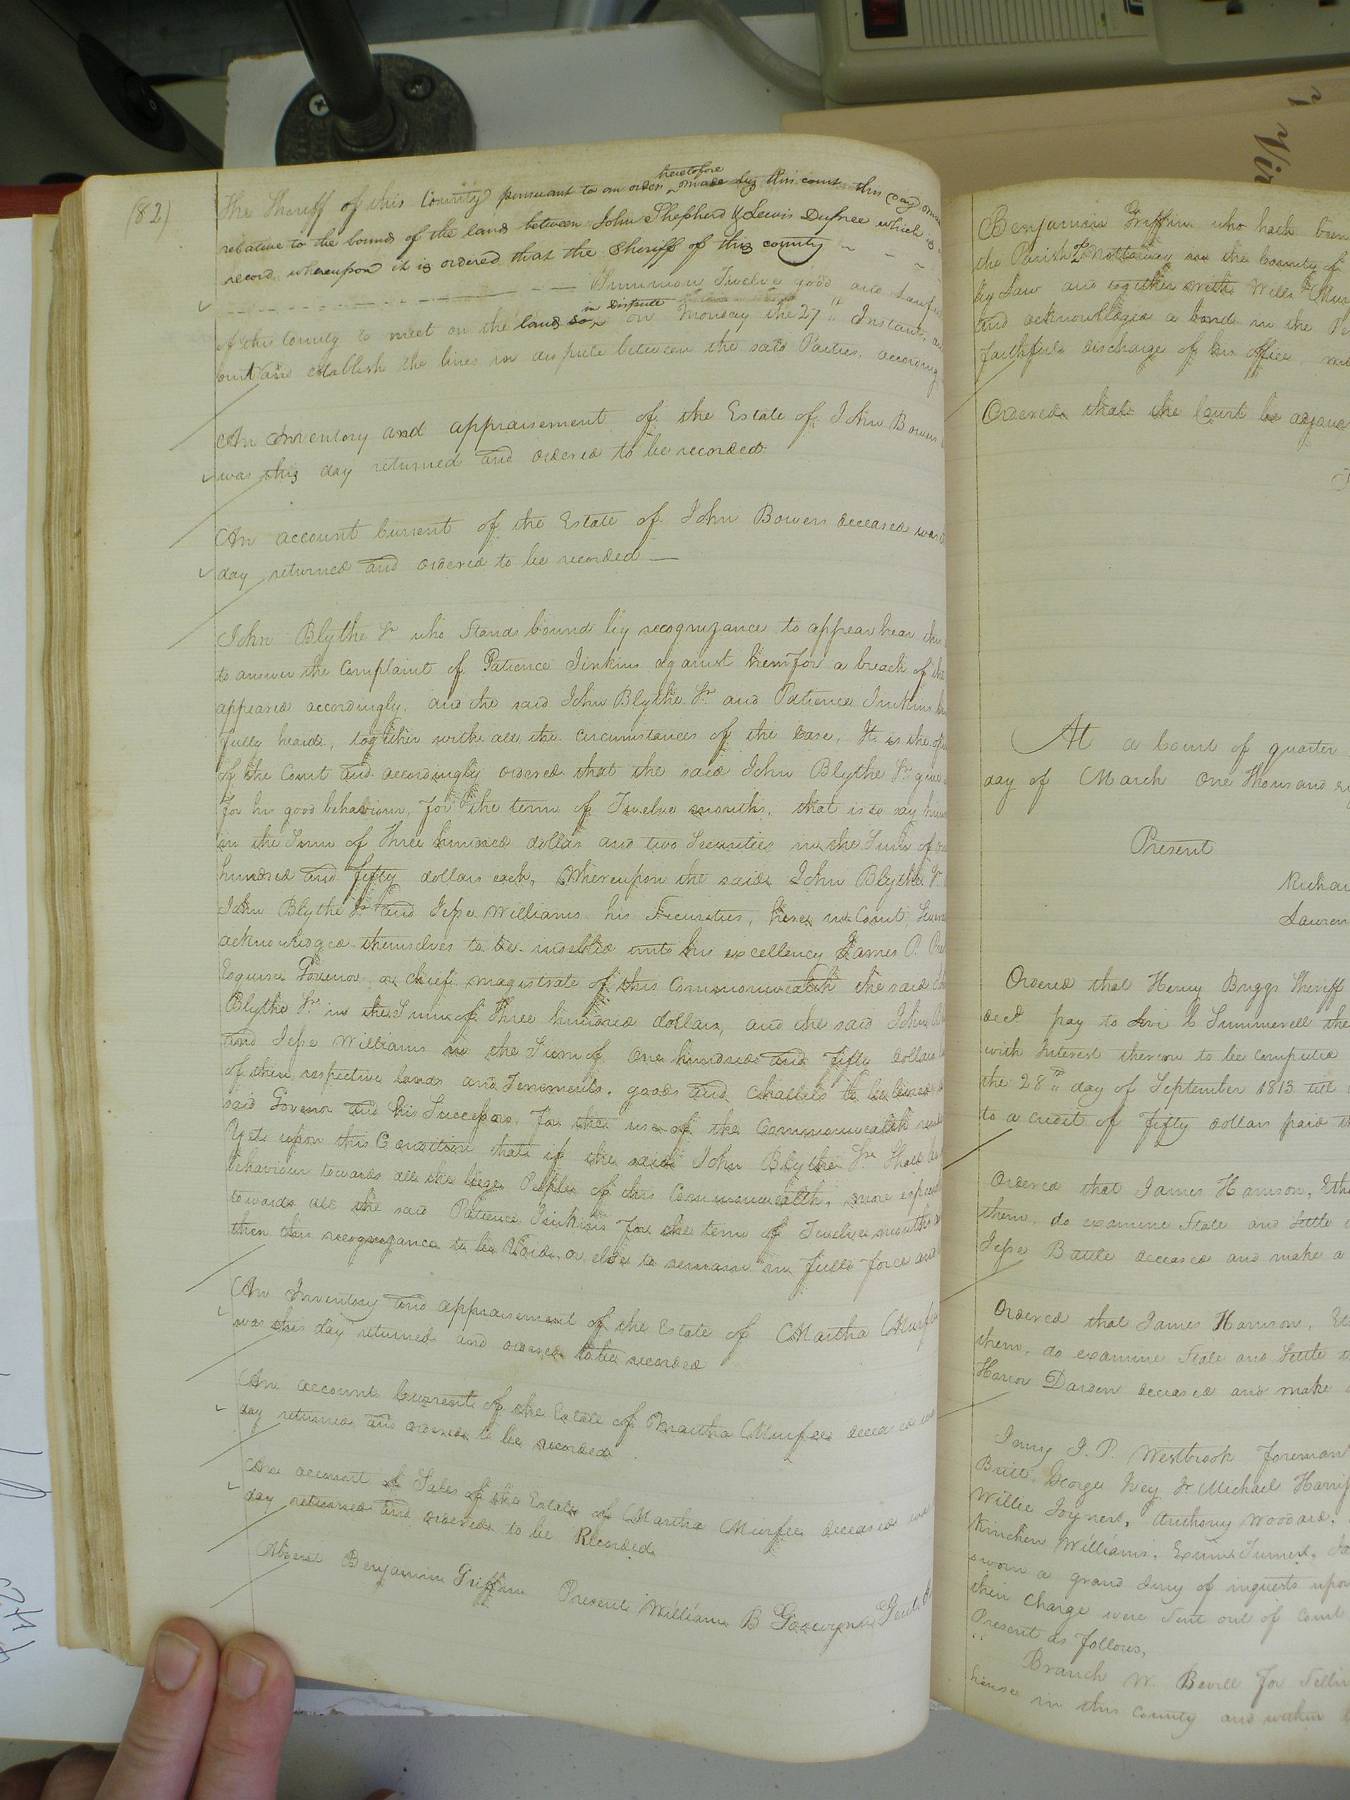 (82)
The Sheriff of this County pursuant to an order heretofore made by this court this day
relative to the bounds of the land between John Shepherd & Lewis Dufree which is
record, whereupon it is ordered that the Sheriff of this county
Summon Twelve good and Lawful
of this County to meet on the land in dispute on Monday the 27th Instant, and
and establish the lines in dispute between the said Parties, according
An Inventory and appraisement of the Estate of John Bowers
was this day returned and ordered to be recorded
An account Current of the Estate of John Bowers deceased was
day returned and ordered to be recorded —
John Blythe Jr who Stands bound by recognizance to appear hear this
to answer the Complaint of Patience Jinkins against him for a breach of the
appeared accordingly, and the said John Blythe Jr and Patience Jinkins
fully heard, together with all the circumstances of the Case, It is the
of the Court and accordingly ordered that the said John Blythe Jr give
for his good behaviour, for the term of Twelve months, that is to say him
in the Sum of Three hundred dollars and two Securities in the Sum of one
hundred and fifty dollars each, Whereupon the said John Blythe Jr
John Blythe Sr and Jesse Williams his Securities, here in Court
acknowledged themselves to be indebted unto his excellency James P.
Esquire Govenor or chief magistrate of this Commonwealth the said
Blythe Jr in the Sum of Three hundred dollars, and the said John
and Jesse Williams in the Sum of One hundred and fifty dollars
of their respective lands and Tenements, goods and Chattels to be levied
said Govenor and his Successors, for the use of the Commonwealth
Yet upon this Condition that if the said John Blythe Jr Shall be
behaviour towards all the liege People of this Commonwealth, more especially
towards the said Patience Jinkins for the term of Twelve months
then this recognizance to be Void, or else to remain in full force and
An Inventory and appraisement of the Estate of Martha Murfee
was this day returned and ordered to be recorded
An account Current of the Estate of Martha Murfee deceased was
day returned and ordered to be recorded
An account of Sales of the Estate of Martha Murfee deceased was
day returned and ordered to be Recorded
Absent Benjamin Griffin Present William B Goodwyn Gent
Benjamin Griffin who hath been
the Parish of Nottoway in the County of
by Law and together with Wills
and acknowledged a bond in the
faithful discharge of his office
Ordered that the Court be
At a Court of quarter
day of March One Thousand
Present
Richar
Lauren
Ordered that Henry Briggs Sheriff
decd pay to Levi C Summerell the
with Interest thereon to be computed
the 28th day of September 1813 till
to a credit of fifty dollars paid
Ordered that James Harrison,
them, do examine State and Settle
Jesse Battle deceased and make a
Ordered that James Harrison,
them, do examine State and Settle
Honor Darden deceased and make
Jury J. P. Westbrook foreman
Britt, George Ivey Jr Michael
Willie Joyner, Anthony Woodard,
Kinchen Williams, Exum Turner,
sworn a grand Jury of inquest upon
their charge were Sent out of Court
Present as follows,
Branch W. Bevill for Sellin
house in this County and within